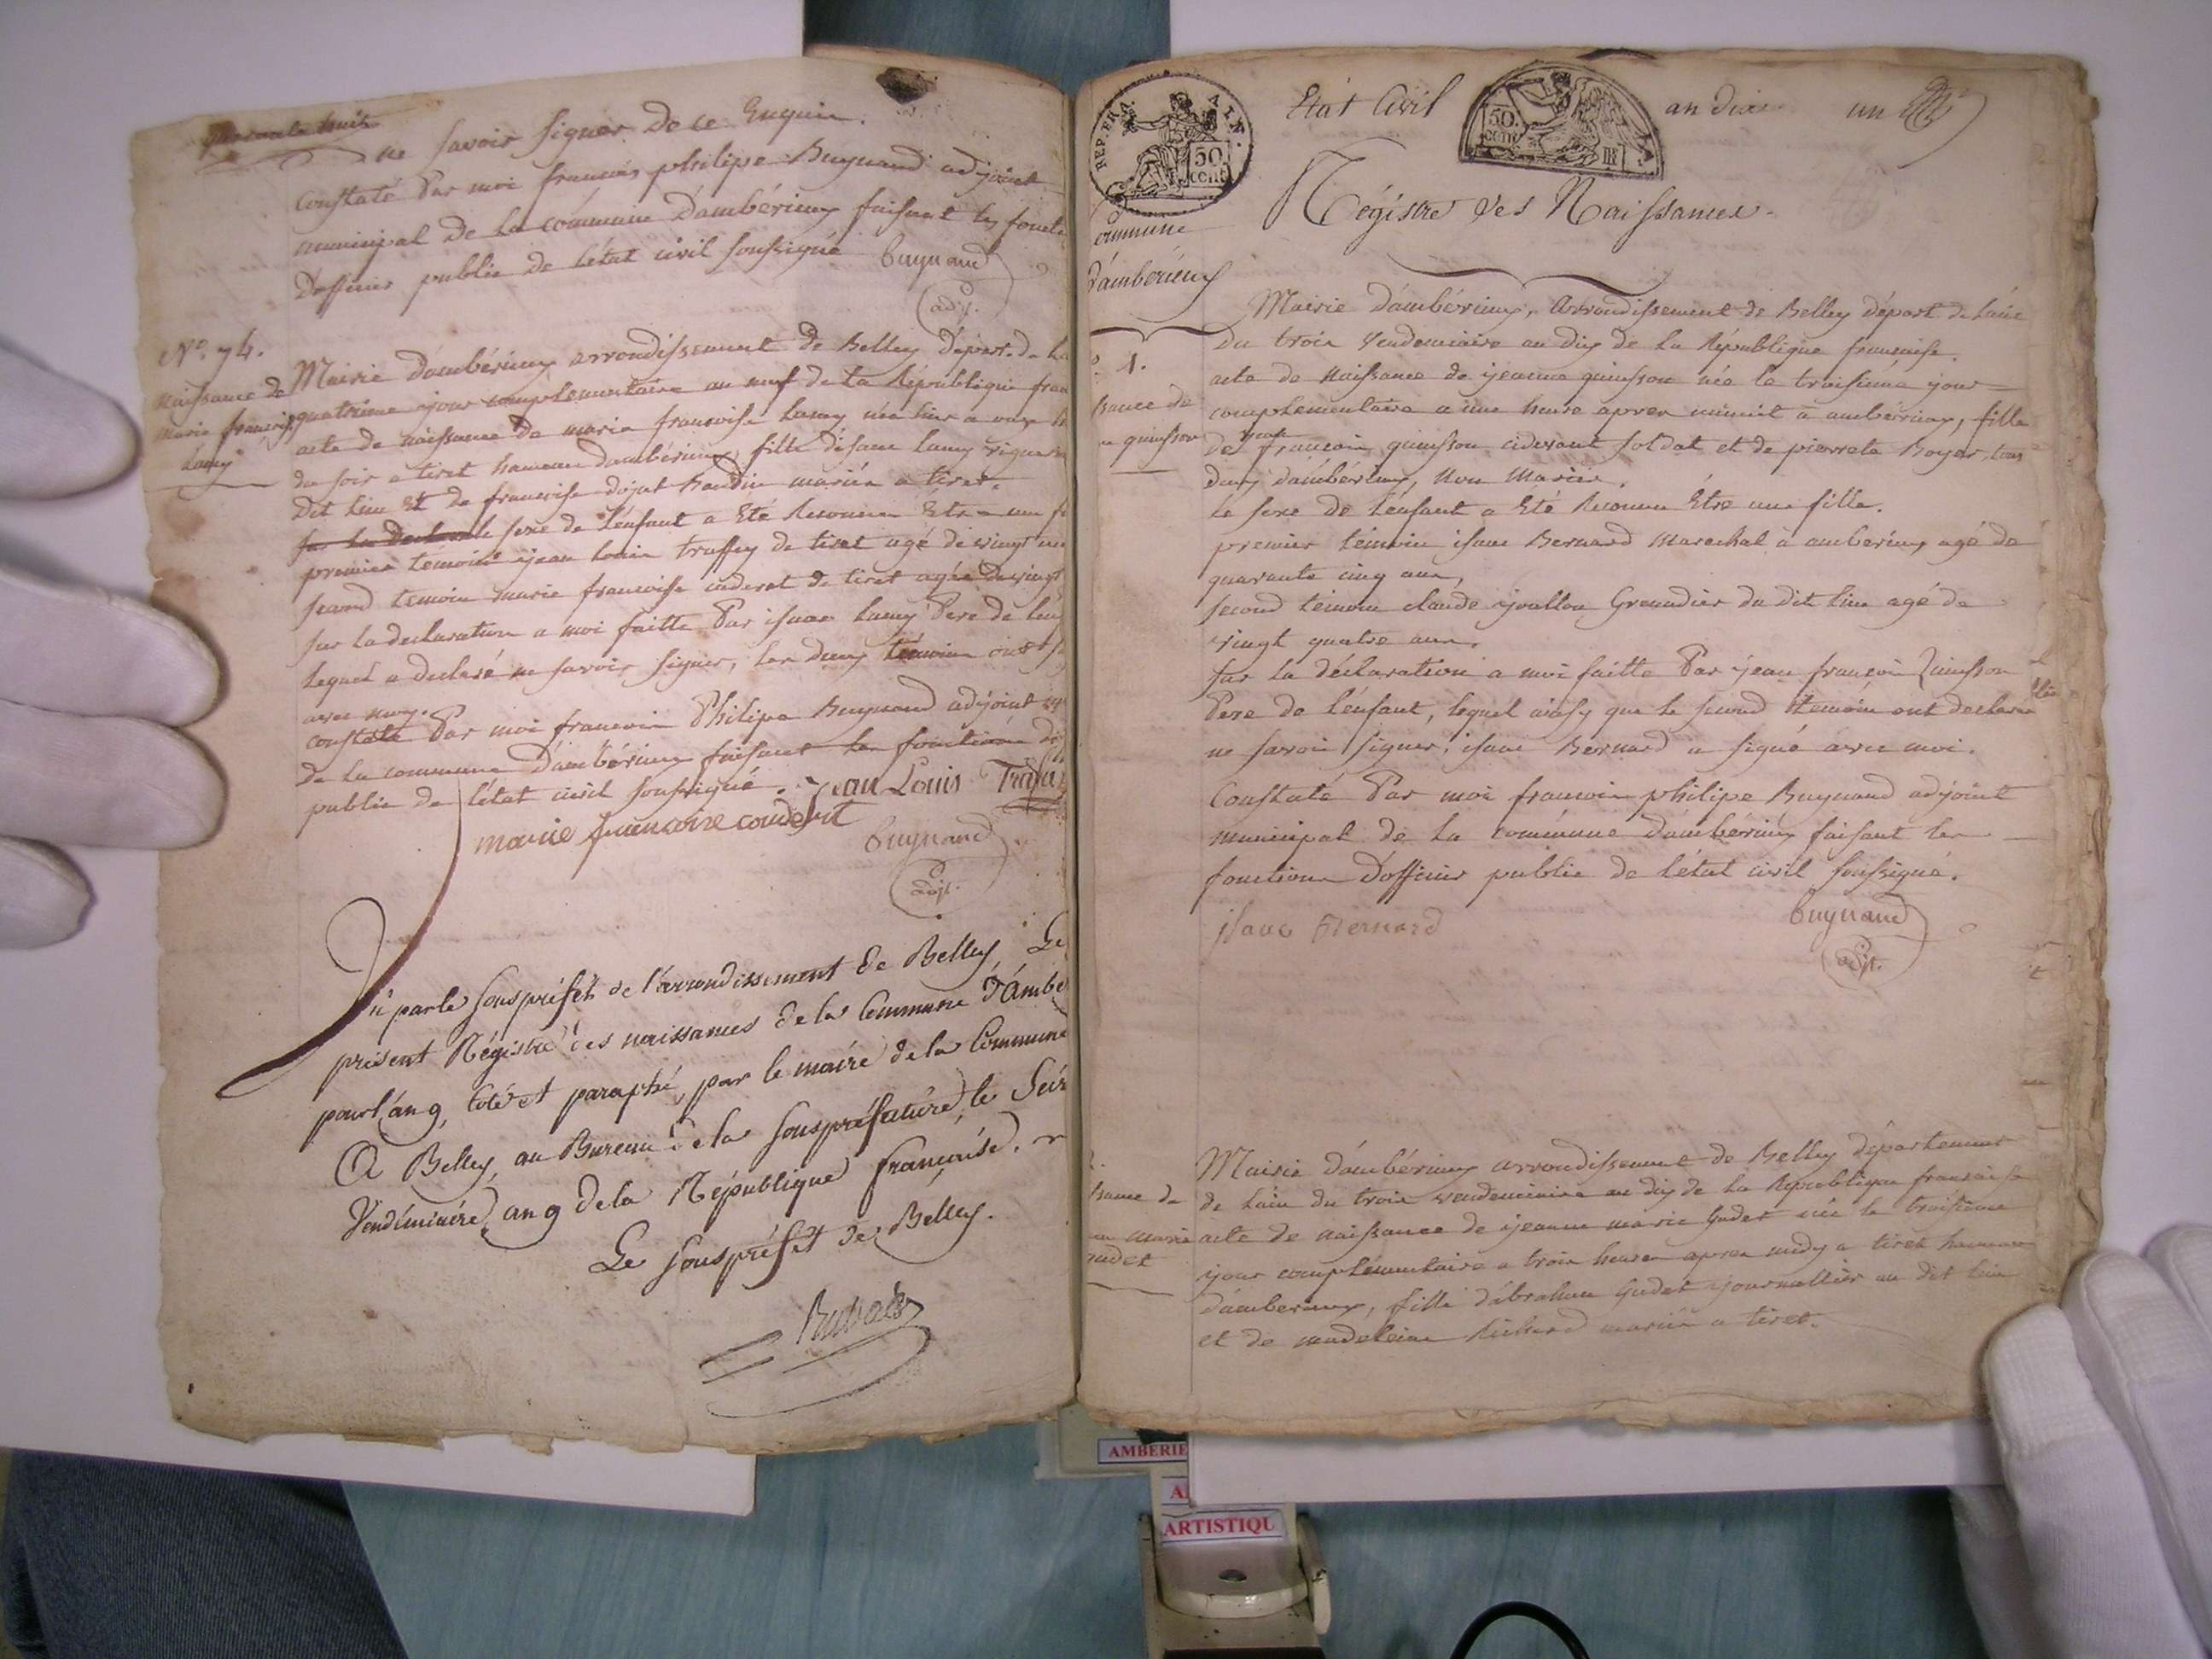 quarante huit
ne savoir signer de ce Enquis.
Constaté Par moi francois philipe Buynand adjoint
municipal de la commune D'ambérieux faisant les foncti
D'officier public de l'état civil soussigné
Buynand
adjt.
No. 74.
Naissance de
marie francoise
Lamy
Mairie d'ambérieux arrondissement de Belley départ. de L
quatrieme jour complementaire an neuf de la République fran
acte de naissance de marie francoise Lamy née hier a onze h
du soir a tiret hameau d'ambérieux, fille d'isaac Lamy vigneron
Dit lieu Et de francoise dojat Baudin mariés a tiret.
sur la declara le sexe de l'enfant a Eté Reconnu Etre une fi
premier témoin jean louis truffey de tiret agé de vingt
second temoin marie francoise couderet de tiret agée de vingt
sur la declaration a moi faitte Par isaac Lamy Pere de l'en
lequel a declaré ne savoir signer, les deux témoins ont s
avec moy.
constaté Par moi francois Philipe Buynand adjoint
de la commune D'ambérieux faisant les fonctions d
public de l'état civil soussigné.
Jean Louis
marie francoise
Buynand
adjt.
Vu par le Sous préfet de l'arrondissement de Belley, Le
présent Régistre des naissances de la Commune d'Ambe
pour l'an 9, coté et paraphé, par le maire de la Commune
A Belley, au Bureau de la Souspréfecture, le
Vendémiaire, an 9 de la République française.
Le Souspréfet de Belley.
REP. FRA. AIN.
50 cent.
Etat Civil
50. cent.
an dix
un
Régistre des Naissances.
Commune
d'ambérieux
1.
sance de
quinsson
Mairie D'ambérieux, Arrondissement de Belley départ. de L'ain
Du trois Vendemiaire an dix de la République francaise.
acte de Naissance de jeanne quinsson née le troisiéme jour
complementaire a une heure apres minuit a ambérieux, fille
de jean francois quinsson cidevant soldat et de pierrete Boyer, tous
deux d'ambérieux, Non Mariés.
Le sexe de L'enfant a Eté Reconnu Etre une fille.
premier témoin isaac Bernard Marechal à amberieux agé de
quarante cinq ans,
second témoin claude Grenadier du dit lieu agé de
vingt quatre ans.
sur la déclaration a moi faitte Par jean francois Quinsson
Pere de l'enfant, lequel ainsy que le second témoin ont declaré
ne savoir signer; isaac Bernard a signé avec moi.
Constaté Par moi francois philipe Buynand adjoint
municipal de la commune d'ambérieux faisant les
fonctions D'officier public de l'état civil soussigné.
isaac Bernard
Buynand
adjt.
sance de
marie
Mairie d'ambérieux arrondissement de Belley département
de L'ain du trois vendemiaire an dix de la République francaise
acte de naissance de jeanne marie Gudet née le troisieme
jour complémentaire a trois heures apres midy a tiret hameau
d'amberieux, fille d'abraham Gudet journallier au dit lieu
et de madeleine Richerd mariés a tiret.
AMBERIE
A
ARTISTIQU